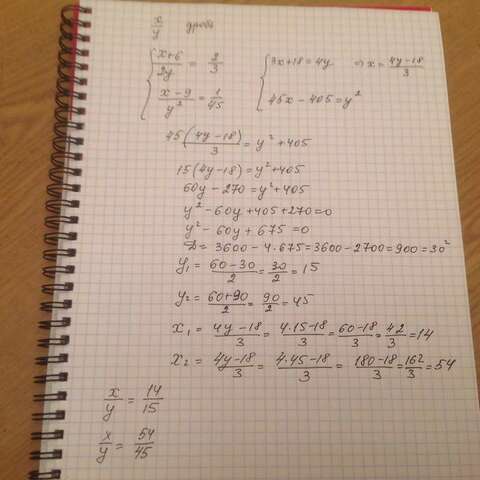 x/y дробь
{ (x+6)/2y = 2/3 { 3x+18=4y ⇒ x = (4y-18)/3
{ (x-9)/y² = 1/45 { 45x-405=y²
45(4y-18)/3 = y²+405
15(4y-18)=y²+405
60y-270=y²+405
y²-60y+405+270=0
y²-60y+675=0
D=3600-4·675=3600-2700=900=30²
y₁=(60-30)/2=30/2=15
y₂=(60+90)/2=90/2=45
x₁=(4y-18)/3=(4·15-18)/3=(60-18)/3=42/3=14
x₂=(4y-18)/3=(4·45-18)/3=(180-18)/3=162/3=54
x/y=14/15
x/y=54/45